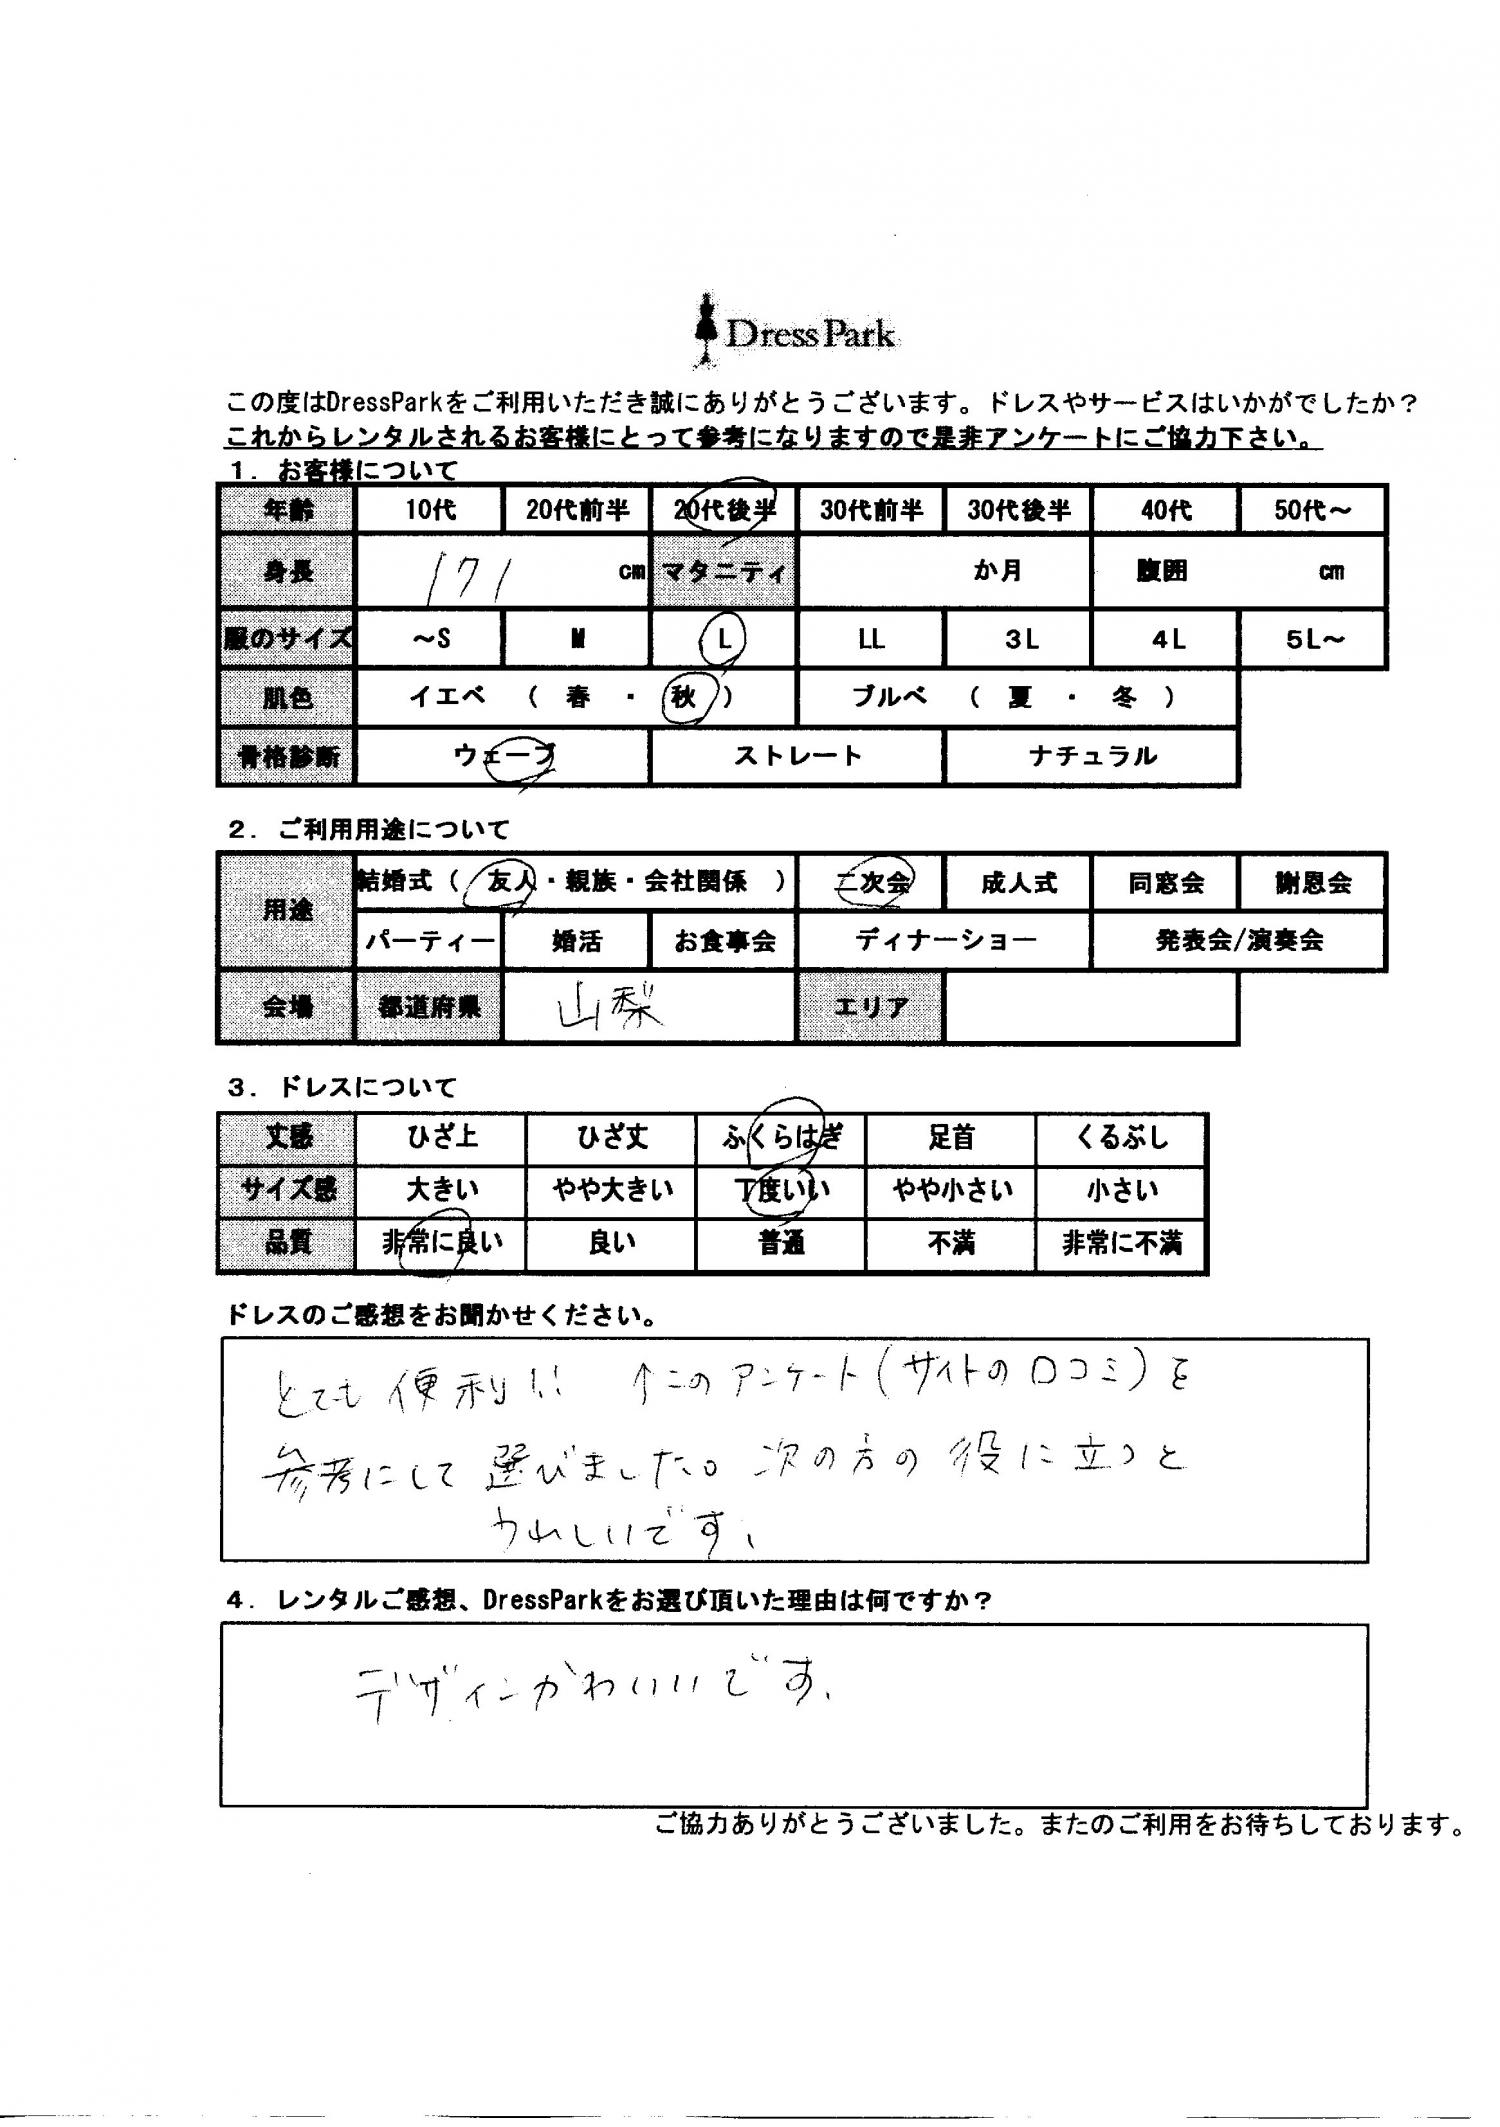 DressPark
この度はDressParkをご利用いただき誠にありがとうございます。ドレスやサービスはいかがでしたか？
これからレンタルされるお客様にとって参考になりますので是非アンケートにご協力下さい。
１．お客様について
年齢 10代 20代前半 20代後半 30代前半 30代後半 40代 50代～
身長 171 cm マタニティ か月 腹囲 cm
服のサイズ ～S M L LL 3L 4L 5L～
肌色 イエベ （ 春 ・ 秋 ） ブルベ （ 夏 ・ 冬 ）
骨格診断 ウェーブ ストレート ナチュラル
２．ご利用用途について
用途 結婚式（ 友人・親族・会社関係 ） 二次会 成人式 同窓会 謝恩会
パーティー 婚活 お食事会 ディナーショー 発表会/演奏会
会場 都道府県 山梨 エリア
３．ドレスについて
丈感 ひざ上 ひざ丈 ふくらはぎ 足首 くるぶし
サイズ感 大きい やや大きい 丁度いい やや小さい 小さい
品質 非常に良い 良い 普通 不満 非常に不満
ドレスのご感想をお聞かせください。
とても便利!! ↑このアンケート(サイトの口コミ)を
参考にして選びました。次の方の役に立つと
うれしいです、
４．レンタルご感想、DressParkをお選び頂いた理由は何ですか？
デザインかわいいです、
ご協力ありがとうございました。またのご利用をお待ちしております。